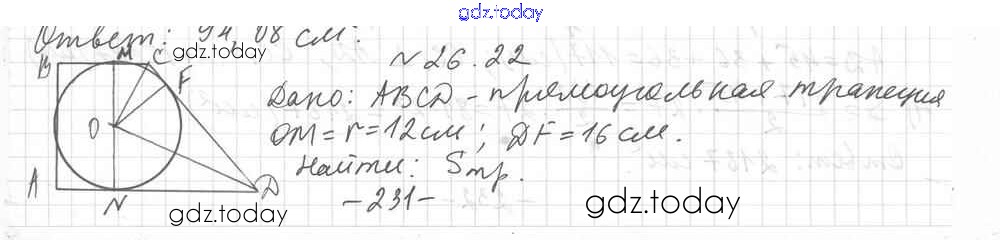 gdz.today
Ответ: 94,08 см².
gdz.today
№26.22
B M C F
Дано: ABCD - прямоугольная трапеция
O
OM = r = 12 см; DF = 16 см.
Найти: Sтр.
A N D
-231-
gdz.today
gdz.today